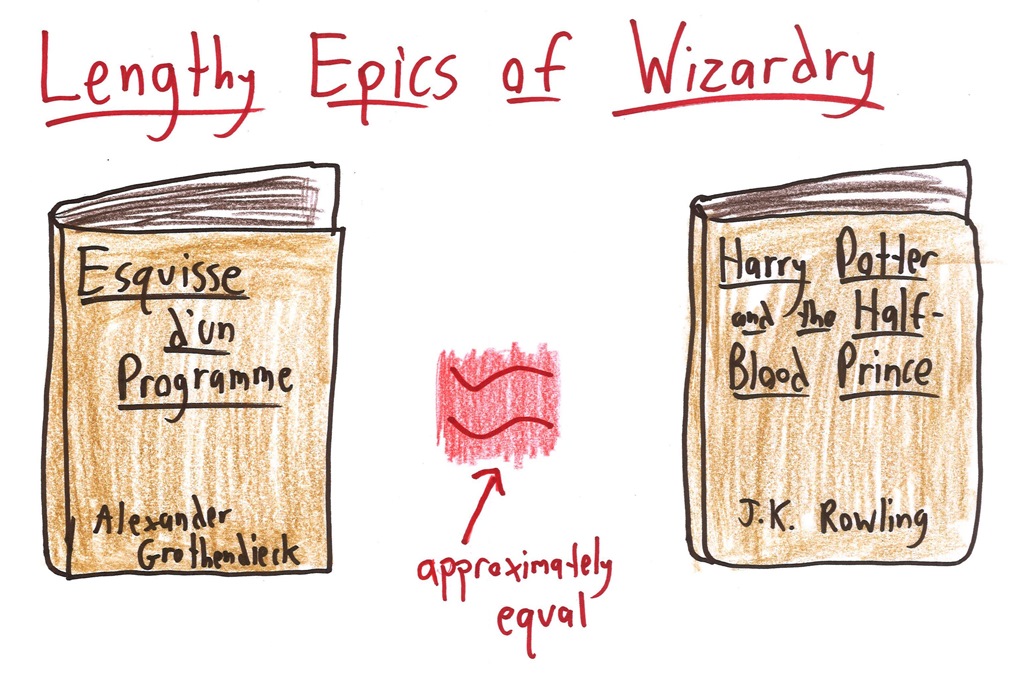 Lengthy Epics of Wizardry
Esquisse
d'un
Programme
Alexander
Grothendieck
≈
approximately
equal
Harry Potter
and the Half-
Blood Prince
J.K. Rowling